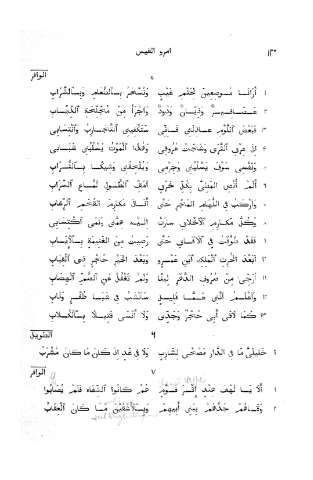 ١٢٠ امرو القيس
الوافر
٥
١ أرانا موضعين لحتم غيب ونسحر بالطعام وبالشراب
٢ عصافير وذبان ودود وأجرأ من مجلحة الذئاب
٣ فبعض اللوم عاذلتي فاني ستكفيني التجارب وانتسابي
٤ الى عرق الثرى وشجت عروقي وهذا الموت يسلبني شبابي
٥ ونفسي سوف يسلبني وجرمي ويلحقني وشيكا بالتراب
٦ ألم أنض المطي بكل خرق أمق الطول لماع السراب
٧ وأركب في اللهام المجر حتى أنال القحم الرغاب
٨ وكل مكارم الأخلاق صارت اليه همتي ونمى اكتسابي
٩ فقد طوفت في الآفاق حتى رضيت من الغنيمة بالاياب
١٠ أبعد الحرث الملك ابن عمرو وبعد الخير حجر ذي القباب
١١ أرجي من صروف الدهر لينا ولم تغفل عن الصم الهضاب
١٢ وأعلم أنني عما قليل سأنشب في شبا ظفر وناب
١٣ كما لاقى أبي حجر وجدي ولا أنسى قتيلا بالكلاب
الطويل
٦
١ خليلي ما في الدار مصحى لشارب ولا في غد اذ كان ما كان مشرب
الوافر
٧
١ ألا يا لهف هند اثر قوم هم كانوا الشفاء فلم يصابوا
٢ وقاهم جدهم ببني أبيهم وبالأشقين ما كان العقاب